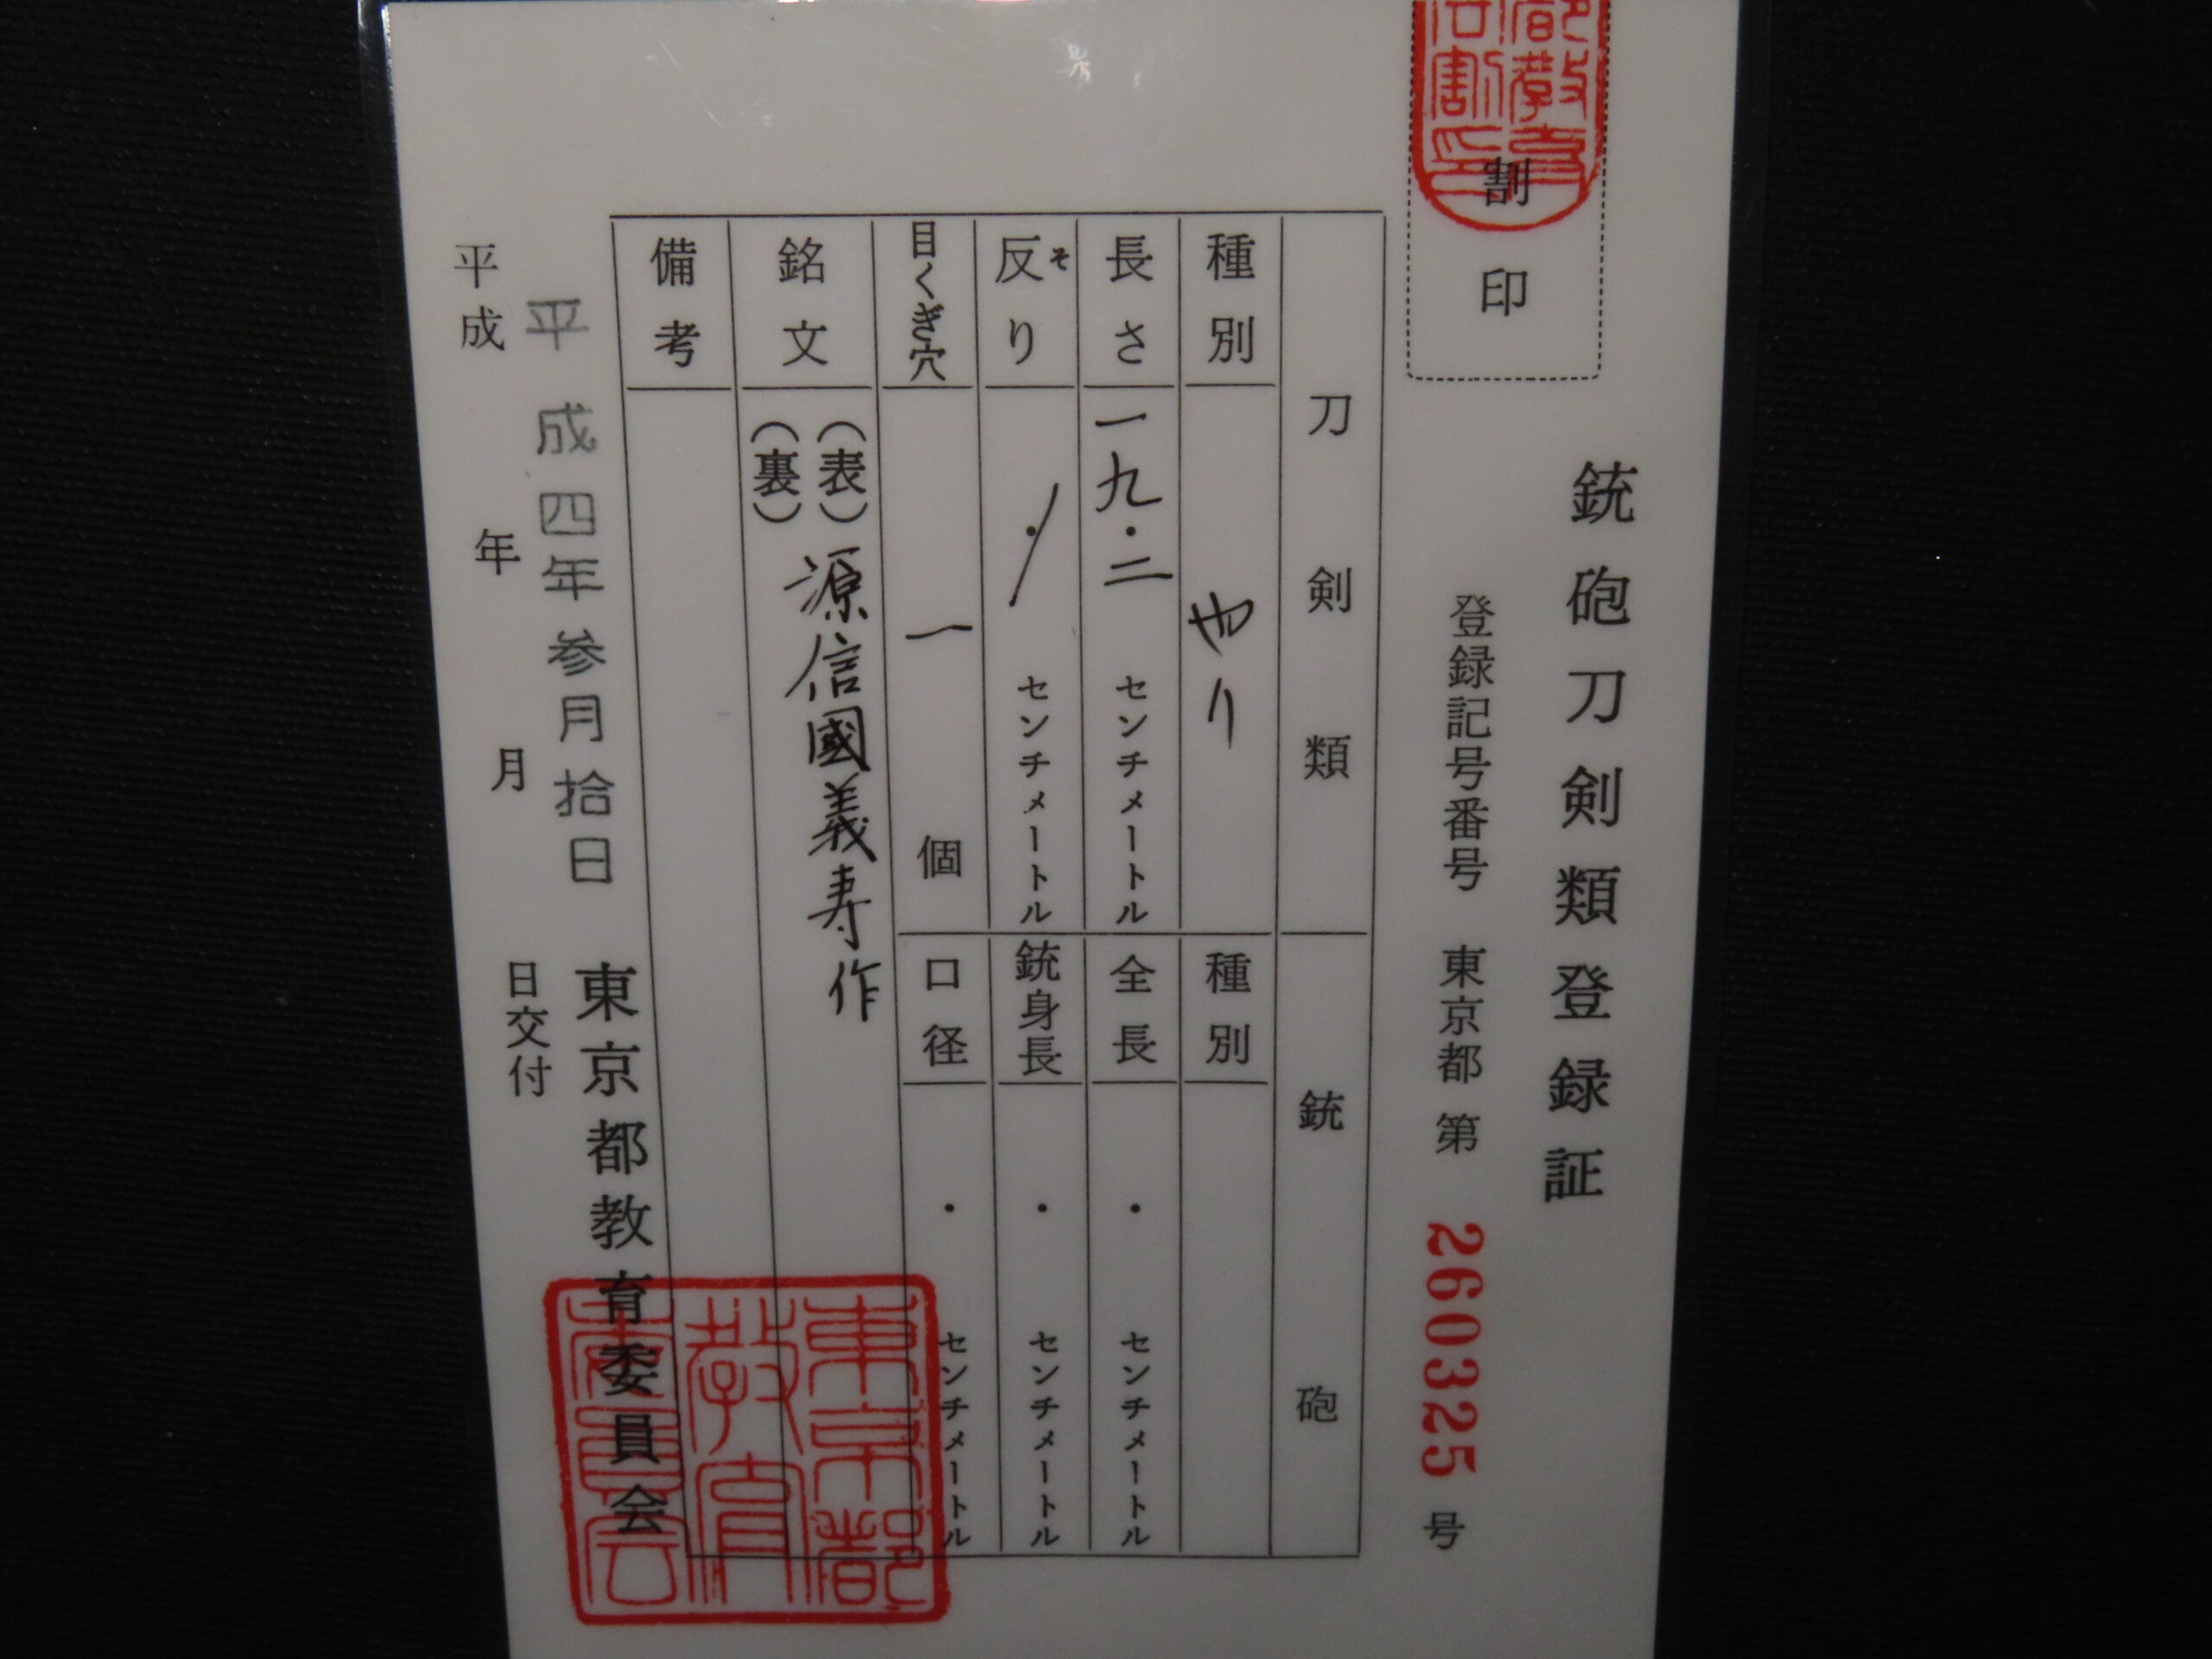 銃砲刀剣類登録証
割印
登録記号番号 東京都 第 260325 号
刀剣類
銃砲
種別 やり
種別
長さ 一九・二 センチメートル
全長 ・ センチメートル
反り そ ・ センチメートル
銃身長 ・ センチメートル
目くぎ穴 一 個
口径 ・ センチメートル
銘文 (表) 源信國義寿作
(裏)
備考
平成四年参月拾日
平成 年 月 日交付
東京都教育委員会
東京都
教育
委員会